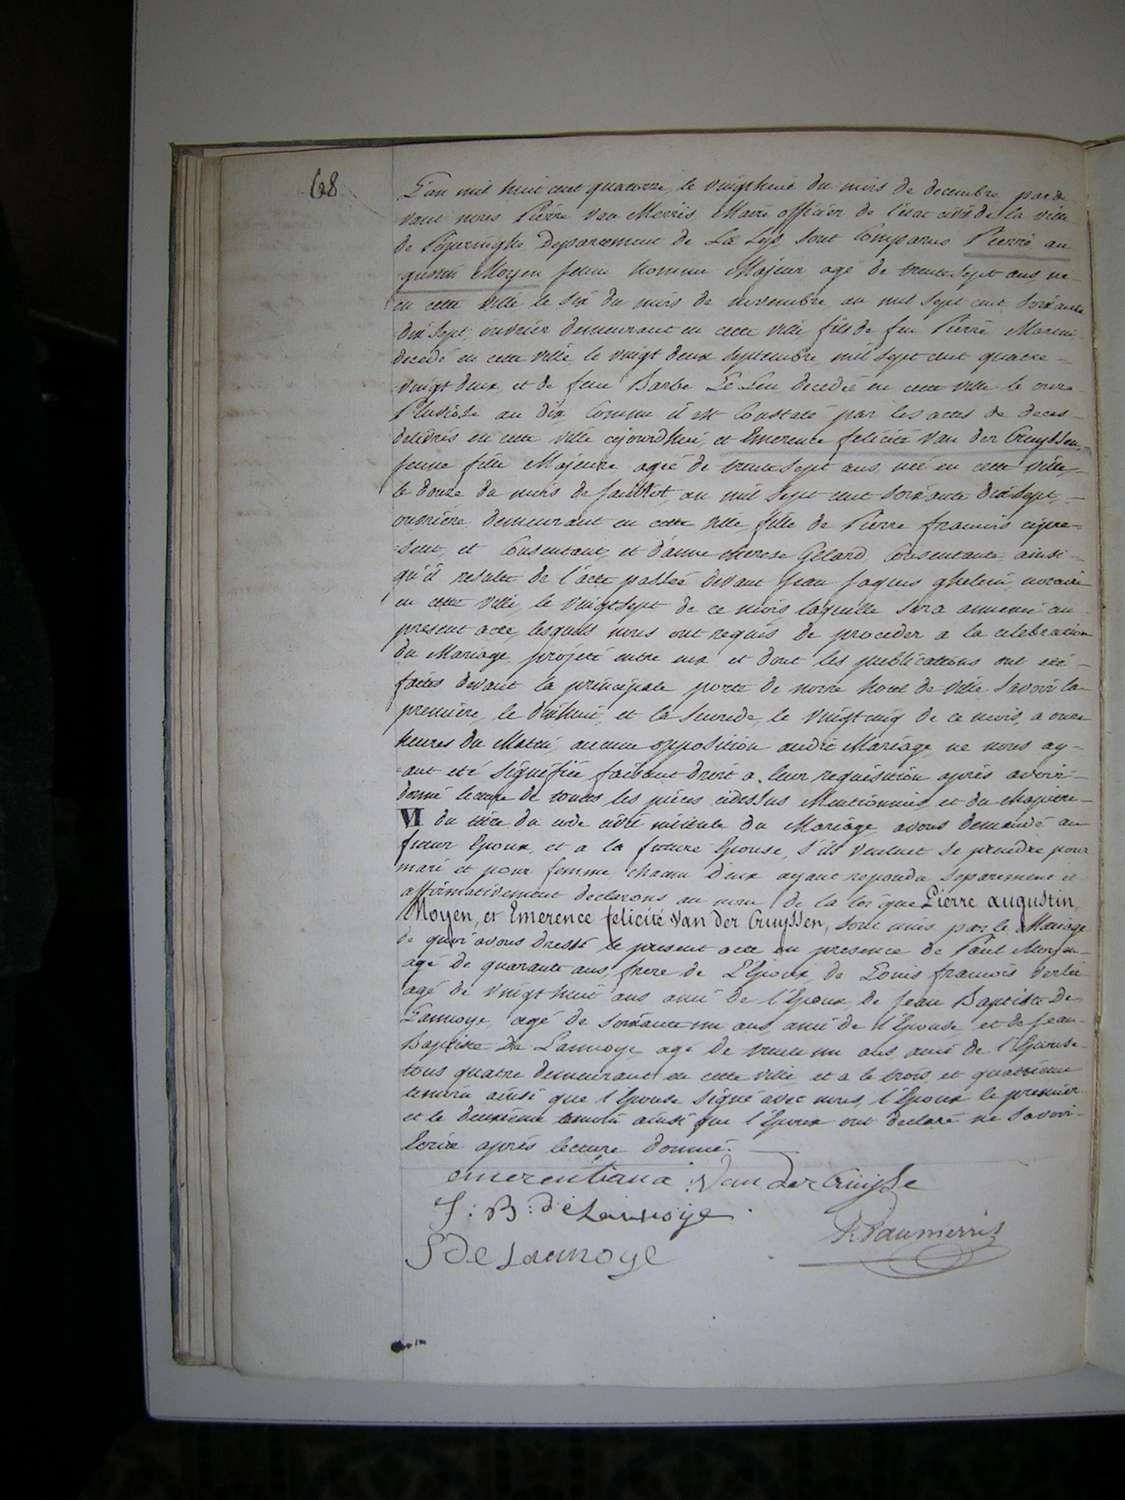 68
L'an mil huit cent quatorze, le vingthuit du mois de decembre parde
vant nous Pierre Van Merris Maire officier de l'etat civil de la ville
de Poperinghe Departement de La Lys, sont Comparus Pierre au
gustin Moyen jeune homme Majeur agé de trente sept ans, né
en cette ville le six du mois de novembre an mil sept cent soixante
dix sept, ouvrier demeurant en cette ville fils de feu Pierre Martin
decedé en cette ville le vingt deux septembre mil sept cent quatre-
vingt deux, et de feue Barbe Le Leu decedée en cette ville le onze
Pluviose an dix Comme il est Constaté par les actes de deces
delivrés en cette ville cejourd'hui, et Emerence felicité Van der Cruyssen,
jeune fille Majeure agée de trente sept ans, née en cette ville,
le douze du mois de Juillet, an mil sept cent soixante dix sept,
ouvrière demeurant en cette ville fille de Pierre francois cipre-
sent, et Consentant, et d'anne therese Gelard Consentante ainsi
qu'il resulte de l'acte passée devant Jean Jaques ghelein, notaire
en cette ville, le vingtsept de ce mois laquelle sera annexée au
present acte, lesquels nous ont requis de proceder a la celebration
du Mariage projeté entre eux et dont les publications ont été
faites devant la principale porte de notre hotel de ville Savoir la
premiere, le dixhuit, et la seconde, le vingtcinq de ce mois, a onze
heures du Matin, aucune opposition audit Mariage ne nous ay-
ant eté signifiée faisant droit a leur requisition après avoir
donné lecture de toutes les pièces cidessus Mentionnées et du chapitre
VI du titre du code civil intitulé du Mariage avons demandé au
futur Epoux, et a la future Epouse, s'ils veulent se prendre pour
mari et pour femme chacun d'eux ayant repondu separement et
affirmativement declarons au nom de la loi que Pierre augustin
Moyen, et Emerence felicité Van der Cruyssen, sont unis par le Mariage
de quoi avons dressé le present acte en presence de Paul Moyen
agé de quarante ans, frere de L'Epoux de Louis francois
agé de vingt huit ans ami de l'Epoux de Jean Baptiste De
Lannoye, agé de soixante un ans, ami de l'Epouse et de Jean
Baptiste De Lannoye agé de trente un ans ami de l'Epouse
tous quatre demeurant en cette ville et a le trois, et quatrieme
temoin ainsi que l'Epouse signé avec nous, l'Epoux le premier
et le deuxième temoin ainsi que l'Epoux ont declaré ne savoir
Ecrire après lecture donnée.
emerentiana Van der Cruysse
J: B: de Lannoye
J De Lannoye
P. Vanmerris